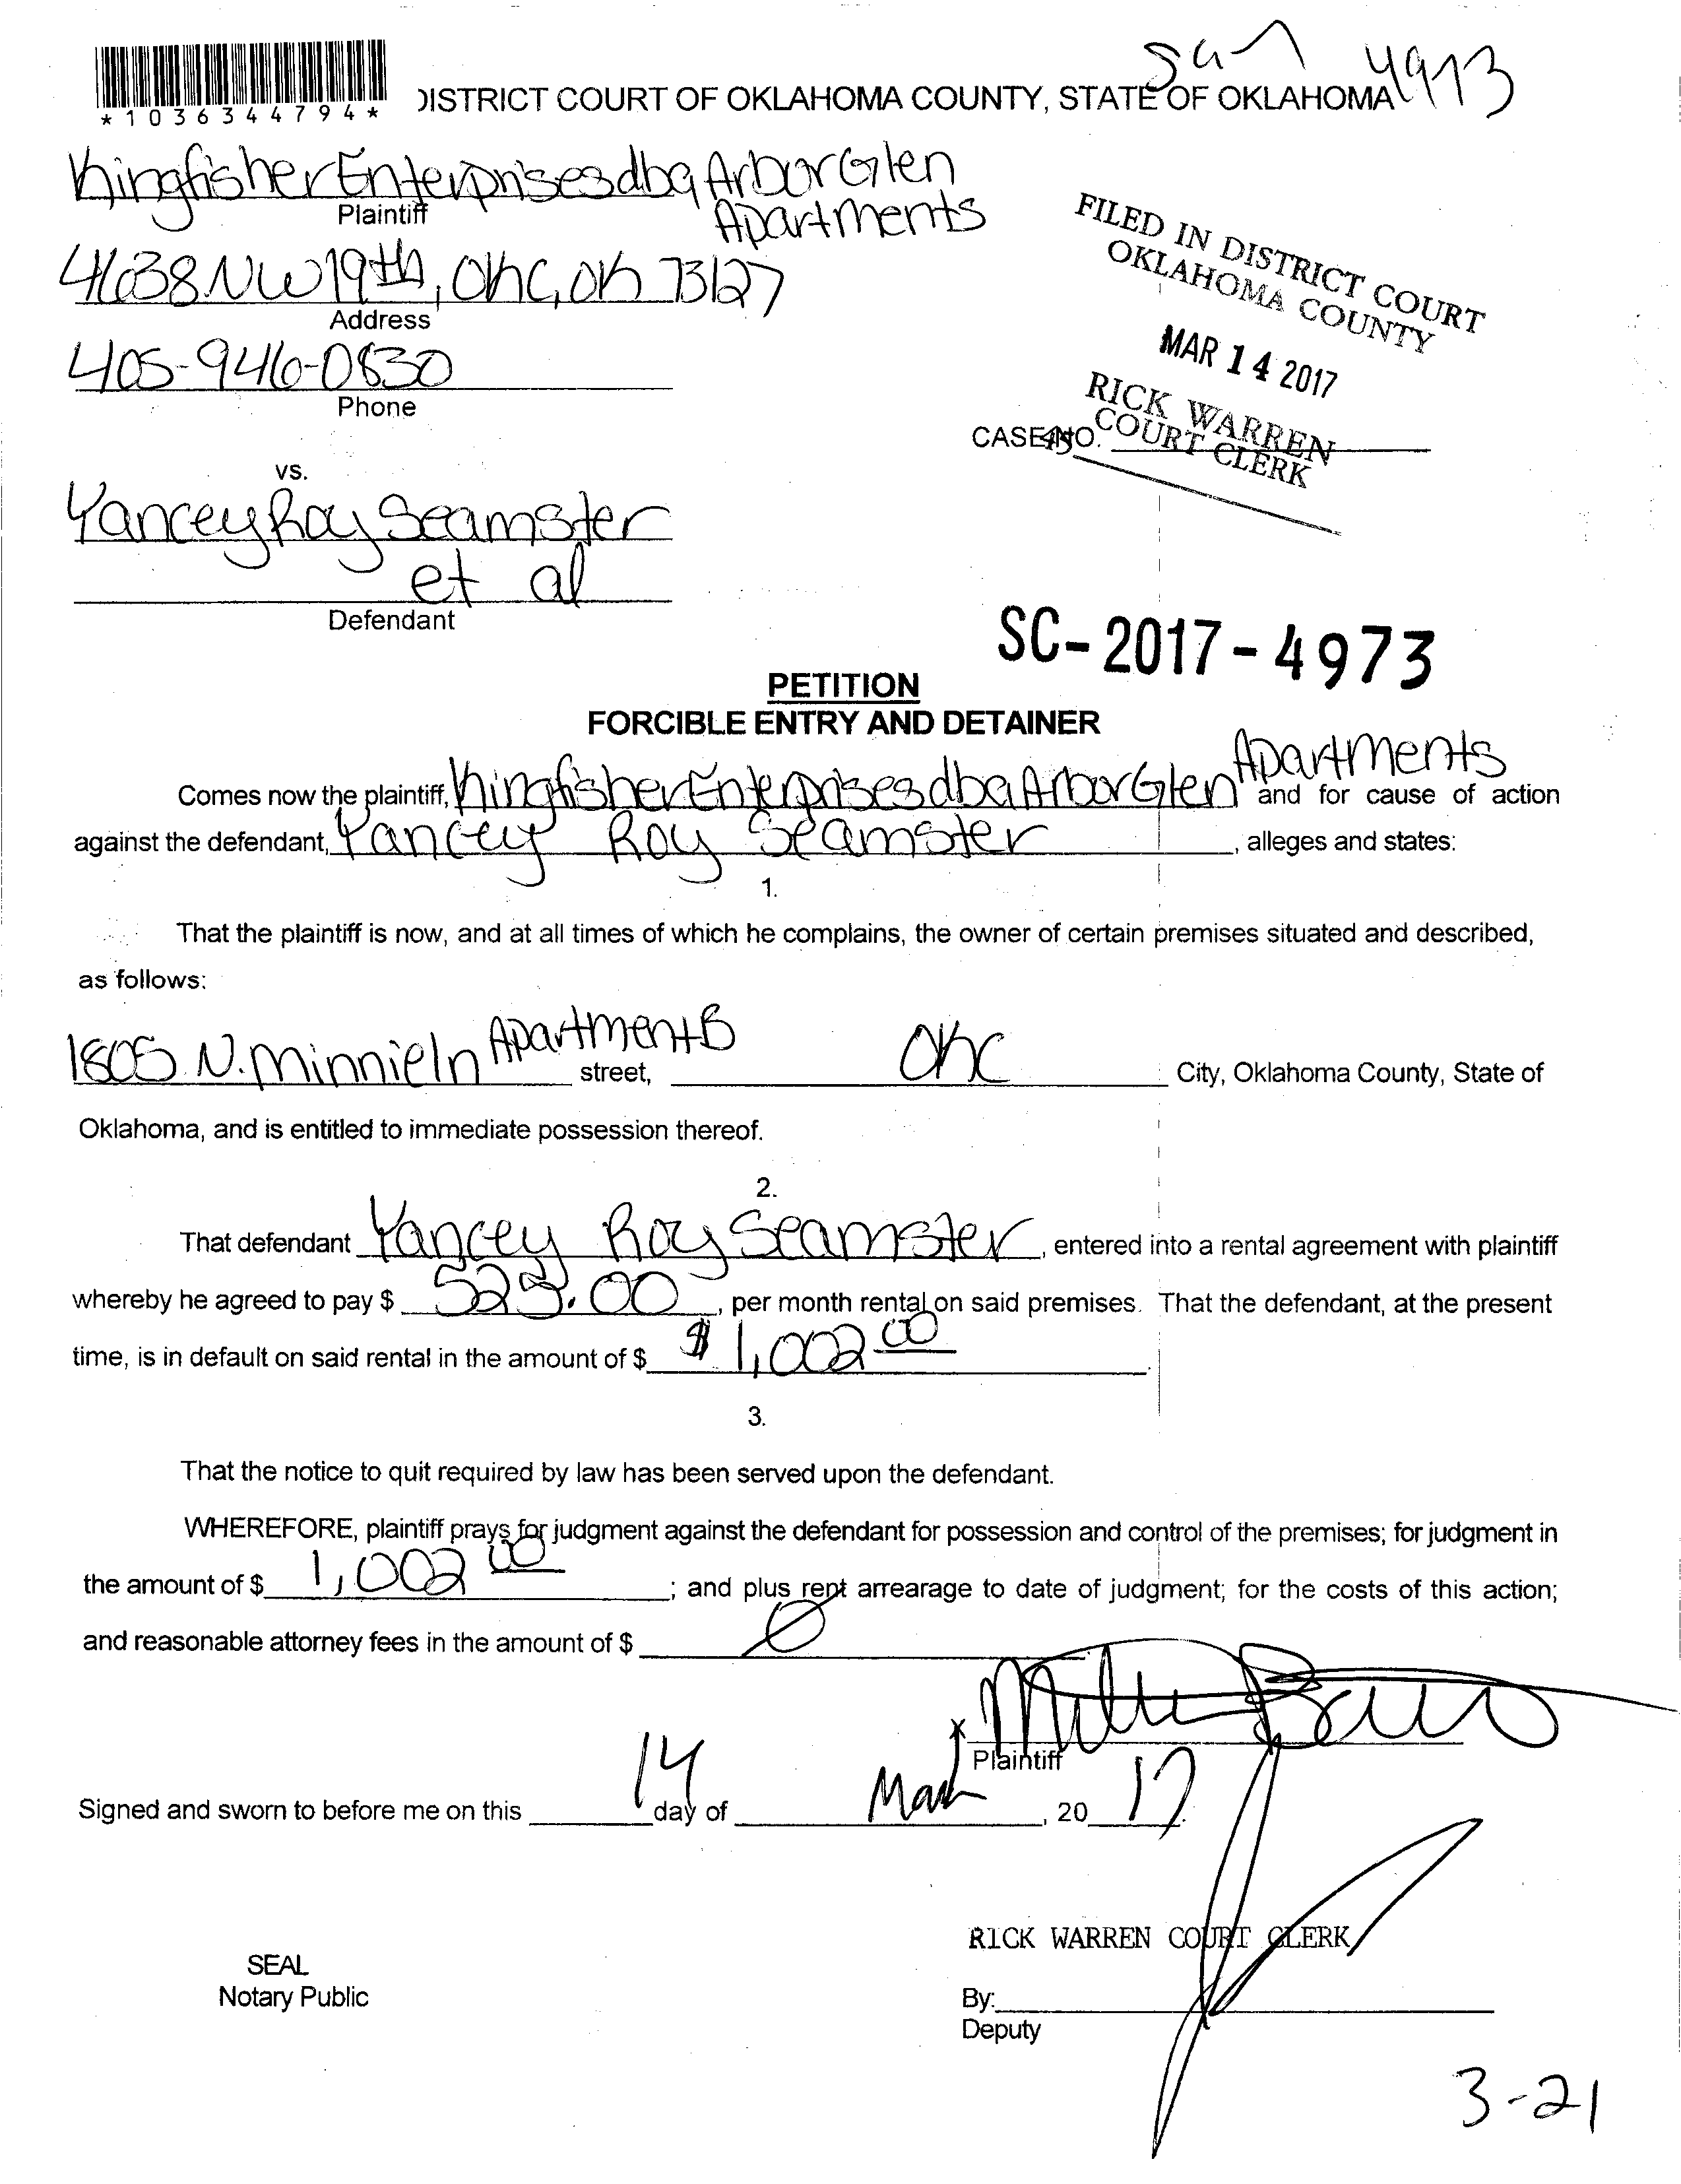 *1036344794*
DISTRICT COURT OF OKLAHOMA COUNTY, STATE OF OKLAHOMA
4973
Kingfisher Enterprises dba Arbor Glen
Apartments
Plaintiff
4638 NW 19th, OKC, OK 73127
Address
405-946-0830
Phone
FILED IN DISTRICT COURT
OKLAHOMA COUNTY
MAR 14 2017
RICK WARREN
COURT CLERK
CASE NO.
45
vs.
Yancey Roy Seamster
et al
Defendant
SC-2017-4973
PETITION
FORCIBLE ENTRY AND DETAINER
Comes now the plaintiff, Kingfisher Enterprises dba Arbor Glen Apartments and for cause of action
against the defendant, Yancey Roy Seamster, alleges and states:
1.
That the plaintiff is now, and at all times of which he complains, the owner of certain premises situated and described,
as follows:
1805 N. Minnie ln Apartment B street, OKC City, Oklahoma County, State of
Oklahoma, and is entitled to immediate possession thereof.
2.
That defendant Yancey Roy Seamster, entered into a rental agreement with plaintiff
whereby he agreed to pay $ 525.00, per month rental on said premises. That the defendant, at the present
time, is in default on said rental in the amount of $ $1,002 00.
3.
That the notice to quit required by law has been served upon the defendant.
WHEREFORE, plaintiff prays for judgment against the defendant for possession and control of the premises; for judgment in
the amount of $ 1,002 00; and plus rent arrearage to date of judgment; for the costs of this action;
and reasonable attorney fees in the amount of $ 0
x
Plaintiff
Signed and sworn to before me on this 14 day of March, 20 17.
RICK WARREN COURT CLERK
SEAL
Notary Public
By:
Deputy
3-21